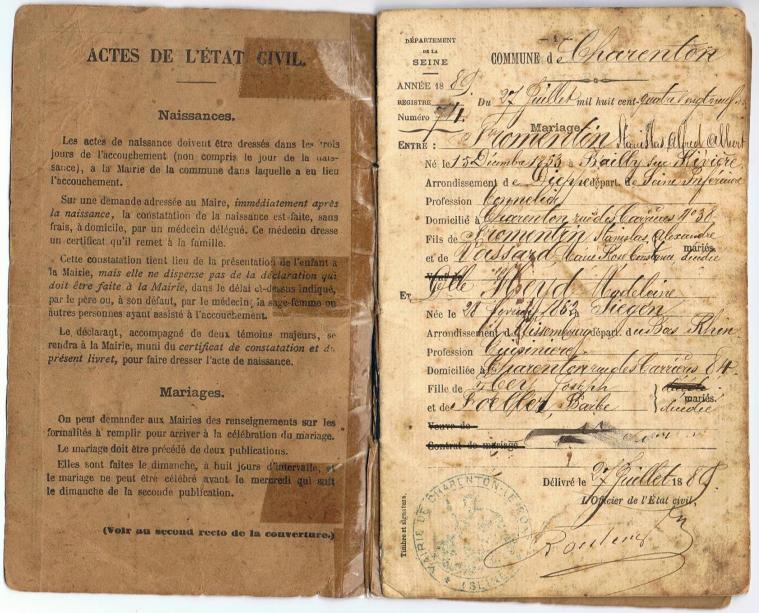 ACTES DE L'ÉTAT CIVIL.
Naissances.
Les actes de naissance doivent être dressés dans les trois
jours de l'accouchement (non compris le jour de la nais-
sance), a la Mairie de la commune dans laquelle a eu lieu
l'accouchement.
Sur une demande adressée au Maire, immédiatement après
la naissance, la constatation de la naissance est faite, sans
frais, à domicile, par un médecin délégué. Ce médecin dresse
un certificat qu'il remet à la famille.
Cette constatation tient lieu de la présentation de l'enfant à
la Mairie, mais elle ne dispense pas de la déclaration qui
doit être faite à la Mairie, dans le délai ci-dessus indiqué,
par le père ou, à son défaut, par le médecin, la sage-femme ou
autres personnes ayant assisté à l'accouchement.
Le déclarant, accompagné de deux témoins majeurs, se
rendra à la Mairie, muni du certificat de constatation et du
présent livret, pour faire dresser l'acte de naissance.
Mariages.
On peut demander aux Mairies des renseignements sur les
formalités à remplir pour arriver à la célébration du mariage.
Le mariage doit être précédé de deux publications.
Elles sont faites le dimanche, à huit jours d'intervalle, et
le mariage ne peut être célébré avant le mercredi qui suit
le dimanche de la seconde publication.
(Voir au second recto de la couverture.)
— 1 —
DÉPARTEMENT
DE LA
SEINE
COMMUNE de Charenton
ANNÉE 1889
REGISTRE
Numéro 74
Du 27 Juillet mil huit cent quatre vingt neuf
Mariage
ENTRE : Fromentin Stanislas Alfred Albert
Né le 15 Décembre 1853 à Bailly sur Rivière
Arrondissement de Dieppe départ. de Seine Inférieure
Profession
Domicilié à Charenton rue des Carrières No 38
Fils de Fromentin Stanislas Alexandre
et de Vassard Marie Rose Constance décédée
mariés.
Veuf de
Et Melle Madeleine
Née le 28 1862 à
Arrondissement de Wissembourg départ. du Bas Rhin
Profession Cuisinière
Domiciliée à Charenton rue des Carrières 84
Fille de Joseph
et de Barbe décédée
mariés.
Veuve de
Contrat de mariage
Délivré le 27 Juillet 1889
L'Officier de l'État civil.
Timbre et signature.
MAIRIE DE CHARENTON-LE-PONT
(SEINE)